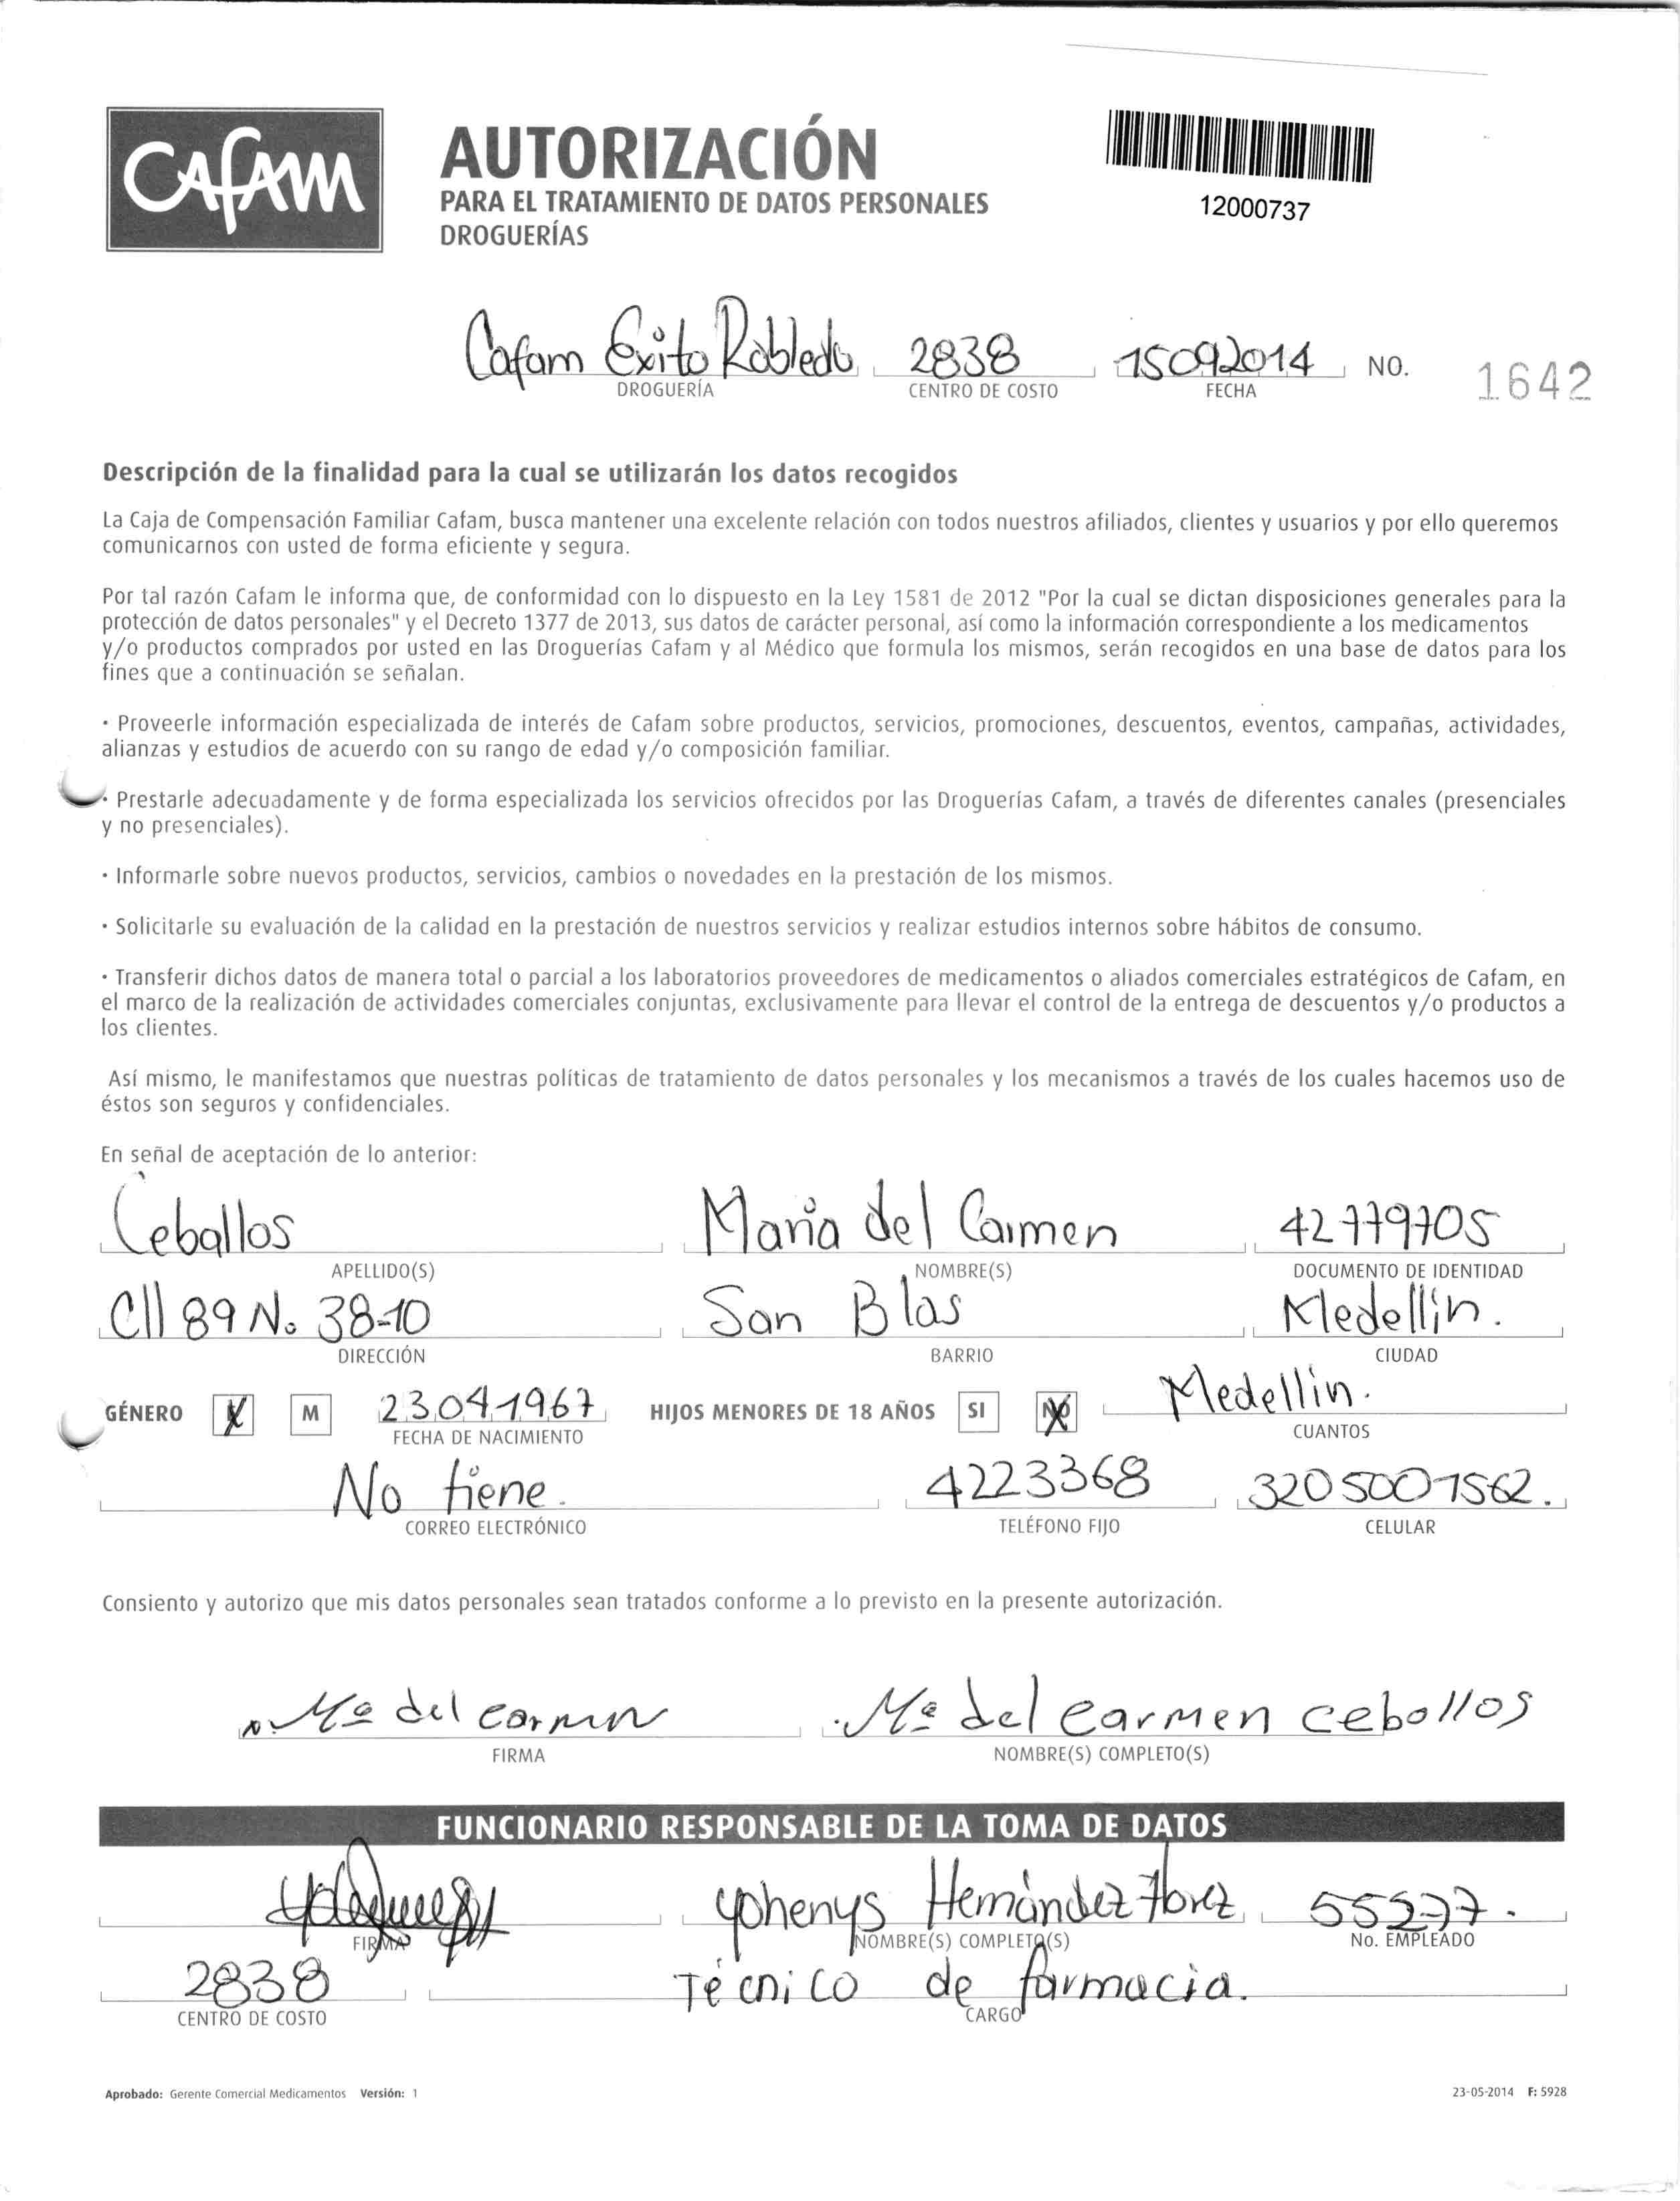 CAFAM
AUTORIZACIÓN
PARA EL TRATAMIENTO DE DATOS PERSONALES
DROGUERÍAS
12000737
Cafam Exito Robledo 2838 15092014 NO. 1642
DROGUERÍA CENTRO DE COSTO FECHA
Descripción de la finalidad para la cual se utilizarán los datos recogidos
La Caja de Compensación Familiar Cafam, busca mantener una excelente relación con todos nuestros afiliados, clientes y usuarios y por ello queremos
comunicarnos con usted de forma eficiente y segura.
Por tal razón Cafam le informa que, de conformidad con lo dispuesto en la Ley 1581 de 2012 "Por la cual se dictan disposiciones generales para la
protección de datos personales" y el Decreto 1377 de 2013, sus datos de carácter personal, así como la información correspondiente a los medicamentos
y/o productos comprados por usted en las Droguerías Cafam y al Médico que formula los mismos, serán recogidos en una base de datos para los
fines que a continuación se señalan.
· Proveerle información especializada de interés de Cafam sobre productos, servicios, promociones, descuentos, eventos, campañas, actividades,
alianzas y estudios de acuerdo con su rango de edad y/o composición familiar.
· Prestarle adecuadamente y de forma especializada los servicios ofrecidos por las Droguerías Cafam, a través de diferentes canales (presenciales
y no presenciales).
· Informarle sobre nuevos productos, servicios, cambios o novedades en la prestación de los mismos.
· Solicitarle su evaluación de la calidad en la prestación de nuestros servicios y realizar estudios internos sobre hábitos de consumo.
· Transferir dichos datos de manera total o parcial a los laboratorios proveedores de medicamentos o aliados comerciales estratégicos de Cafam, en
el marco de la realización de actividades comerciales conjuntas, exclusivamente para llevar el control de la entrega de descuentos y/o productos a
los clientes.
Así mismo, le manifestamos que nuestras políticas de tratamiento de datos personales y los mecanismos a través de los cuales hacemos uso de
éstos son seguros y confidenciales.
En señal de aceptación de lo anterior:
Ceballos Maria del Carmen 42779705
APELLIDO(S) NOMBRE(S) DOCUMENTO DE IDENTIDAD
Cll 89 No 38-10 San Blas Medellin.
DIRECCIÓN BARRIO CIUDAD
GÉNERO M 23041967 HIJOS MENORES DE 18 AÑOS SI NO Medellin.
FECHA DE NACIMIENTO CUANTOS
No tiene. 4223368 3205001562.
CORREO ELECTRÓNICO TELÉFONO FIJO CELULAR
Consiento y autorizo que mis datos personales sean tratados conforme a lo previsto en la presente autorización.
Mª del carmen Mª del carmen ceballos
FIRMA NOMBRE(S) COMPLETO(S)
FUNCIONARIO RESPONSABLE DE LA TOMA DE DATOS
yohenys Hernández 55277.
FIRMA NOMBRE(S) COMPLETO(S) No. EMPLEADO
2838 Técnico de farmacia.
CENTRO DE COSTO CARGO
Aprobado: Gerente Comercial Medicamentos Versión: 1 23-05-2014 F: 5928